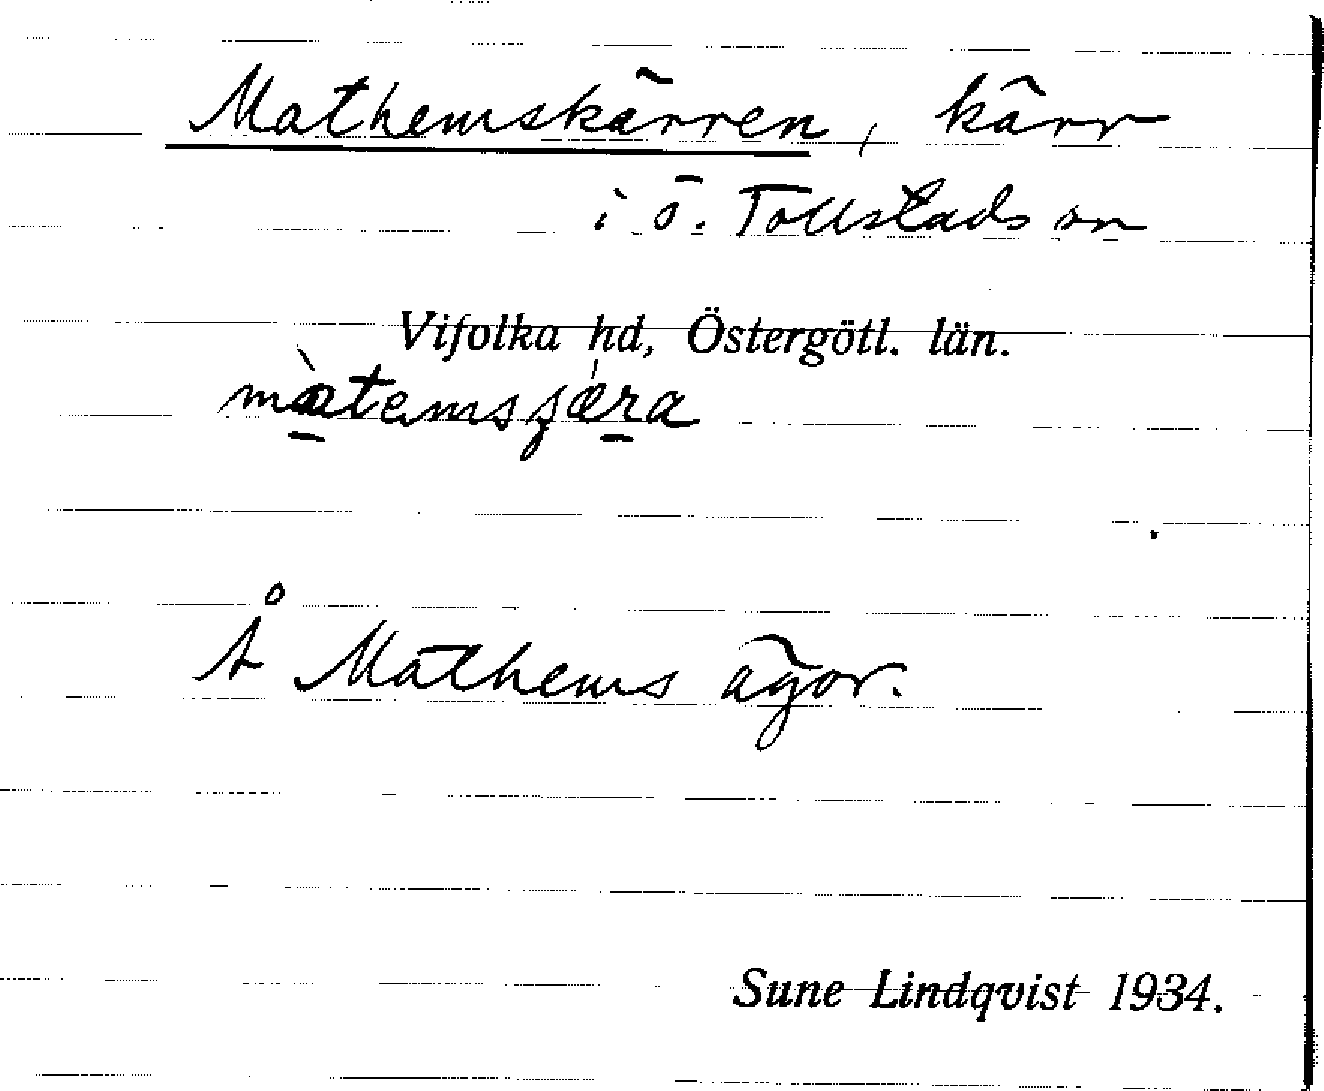 Mathemskärren, kärr
i Ö. Tollstads sn
Vifolka hd, Östergötl. län.
Å Mathems ägor.
Sune Lindqvist 1934.